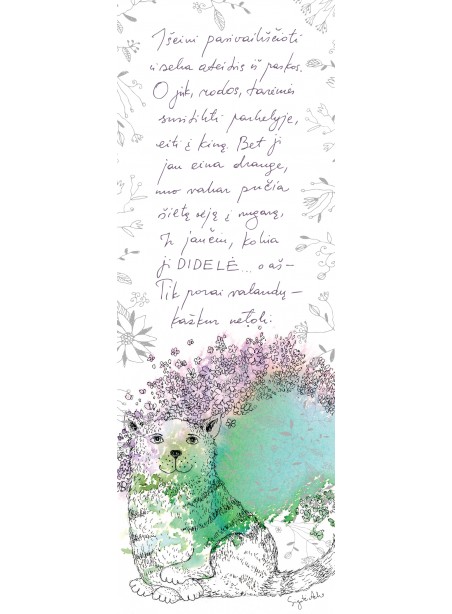 Išeini pasivaikščioti
ir seka ateitis iš paskos.
O juk, rodos, tarėmės
susitikti parkelyje,
eiti į kiną. Bet ji
jau eina drauge,
nuo vakar pučia
šiltą vėją į nugarą,
Ir jaučiu, kokia
ji DIDELĖ... o aš—
Tik porai valandų—
kažkur netoli.